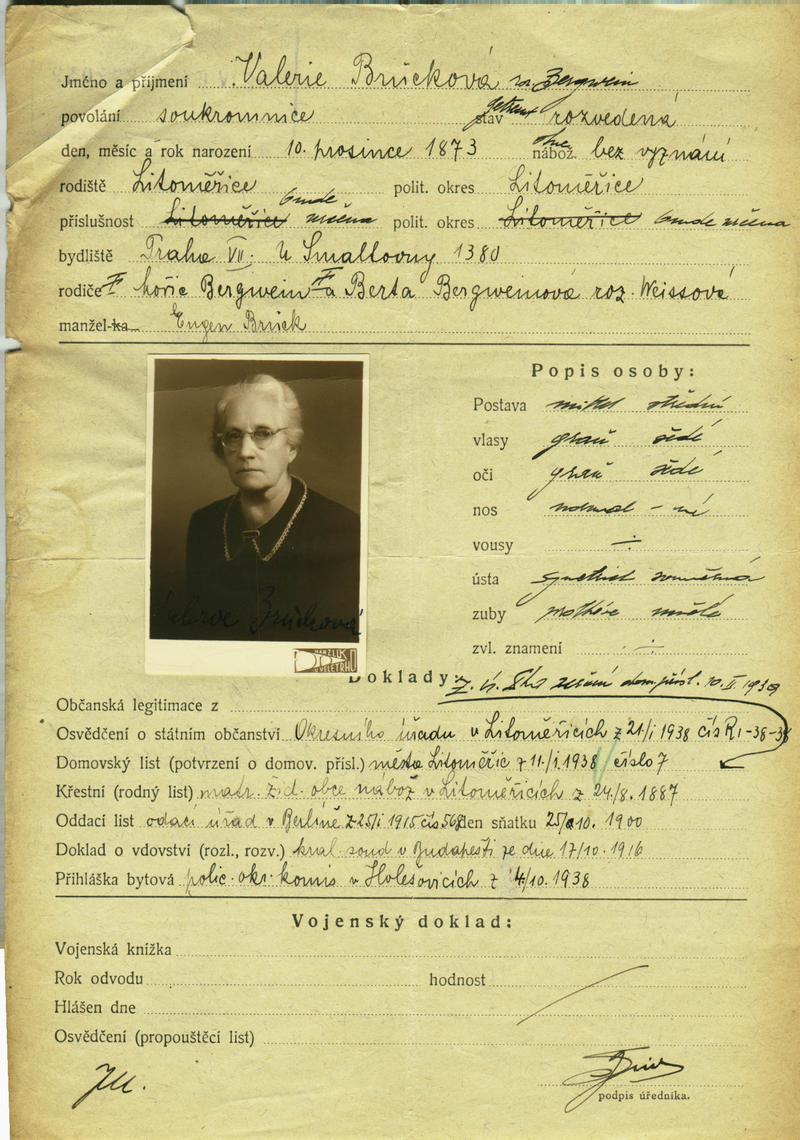 Jméno a příjmení Valerie Brücková roz. Bergwein
povolání soukromnice stav getrennt rozvedená
den, měsíc a rok narození 10. prosince 1873 nábož. ohne bez vyznání
rodiště Litoměřice polit. okres Litoměřice
příslušnost Litoměřice bude určena polit. okres Litoměřice bude určena
bydliště Praha VII. U Smaltovny 1380
rodiče Mořic Bergwein a Berta Bergweinová roz. Weissová
manžel-ka Eugen Brück
Popis osoby:
Postava mittel střední
vlasy grau šedé
oči grau šedé
nos normal - ní
vousy ÷
ústa souměrná
zuby umělé
zvl. znamení ÷
Valerie Brücková
Doklady:
10. II. 1939
Občanská legitimace z
Osvědčení o státním občanství Okresního úřadu v Litoměřicích z 21/I 1938 čís R1-38-38
Domovský list (potvrzení o domov. přísl.) města Litoměřic z 11/I. 1938 číslo 7
Křestní (rodný list) matr. žid. obce nábož v Litoměřicích z 24/8. 1887
Oddací list odací úřad v Berlíně z 25/I 1915 čís 568 den sňatku 25/10. 1900
Doklad o vdovství (rozl., rozv.) král. soud v Budapešti ze dne 17/10. 1916
Přihláška bytová polic. okr. komis v Holešovicích z 4/10. 1938
Vojenský doklad:
Vojenská knížka
Rok odvodu hodnost
Hlášen dne
Osvědčení (propouštěcí list)
podpis úředníka.